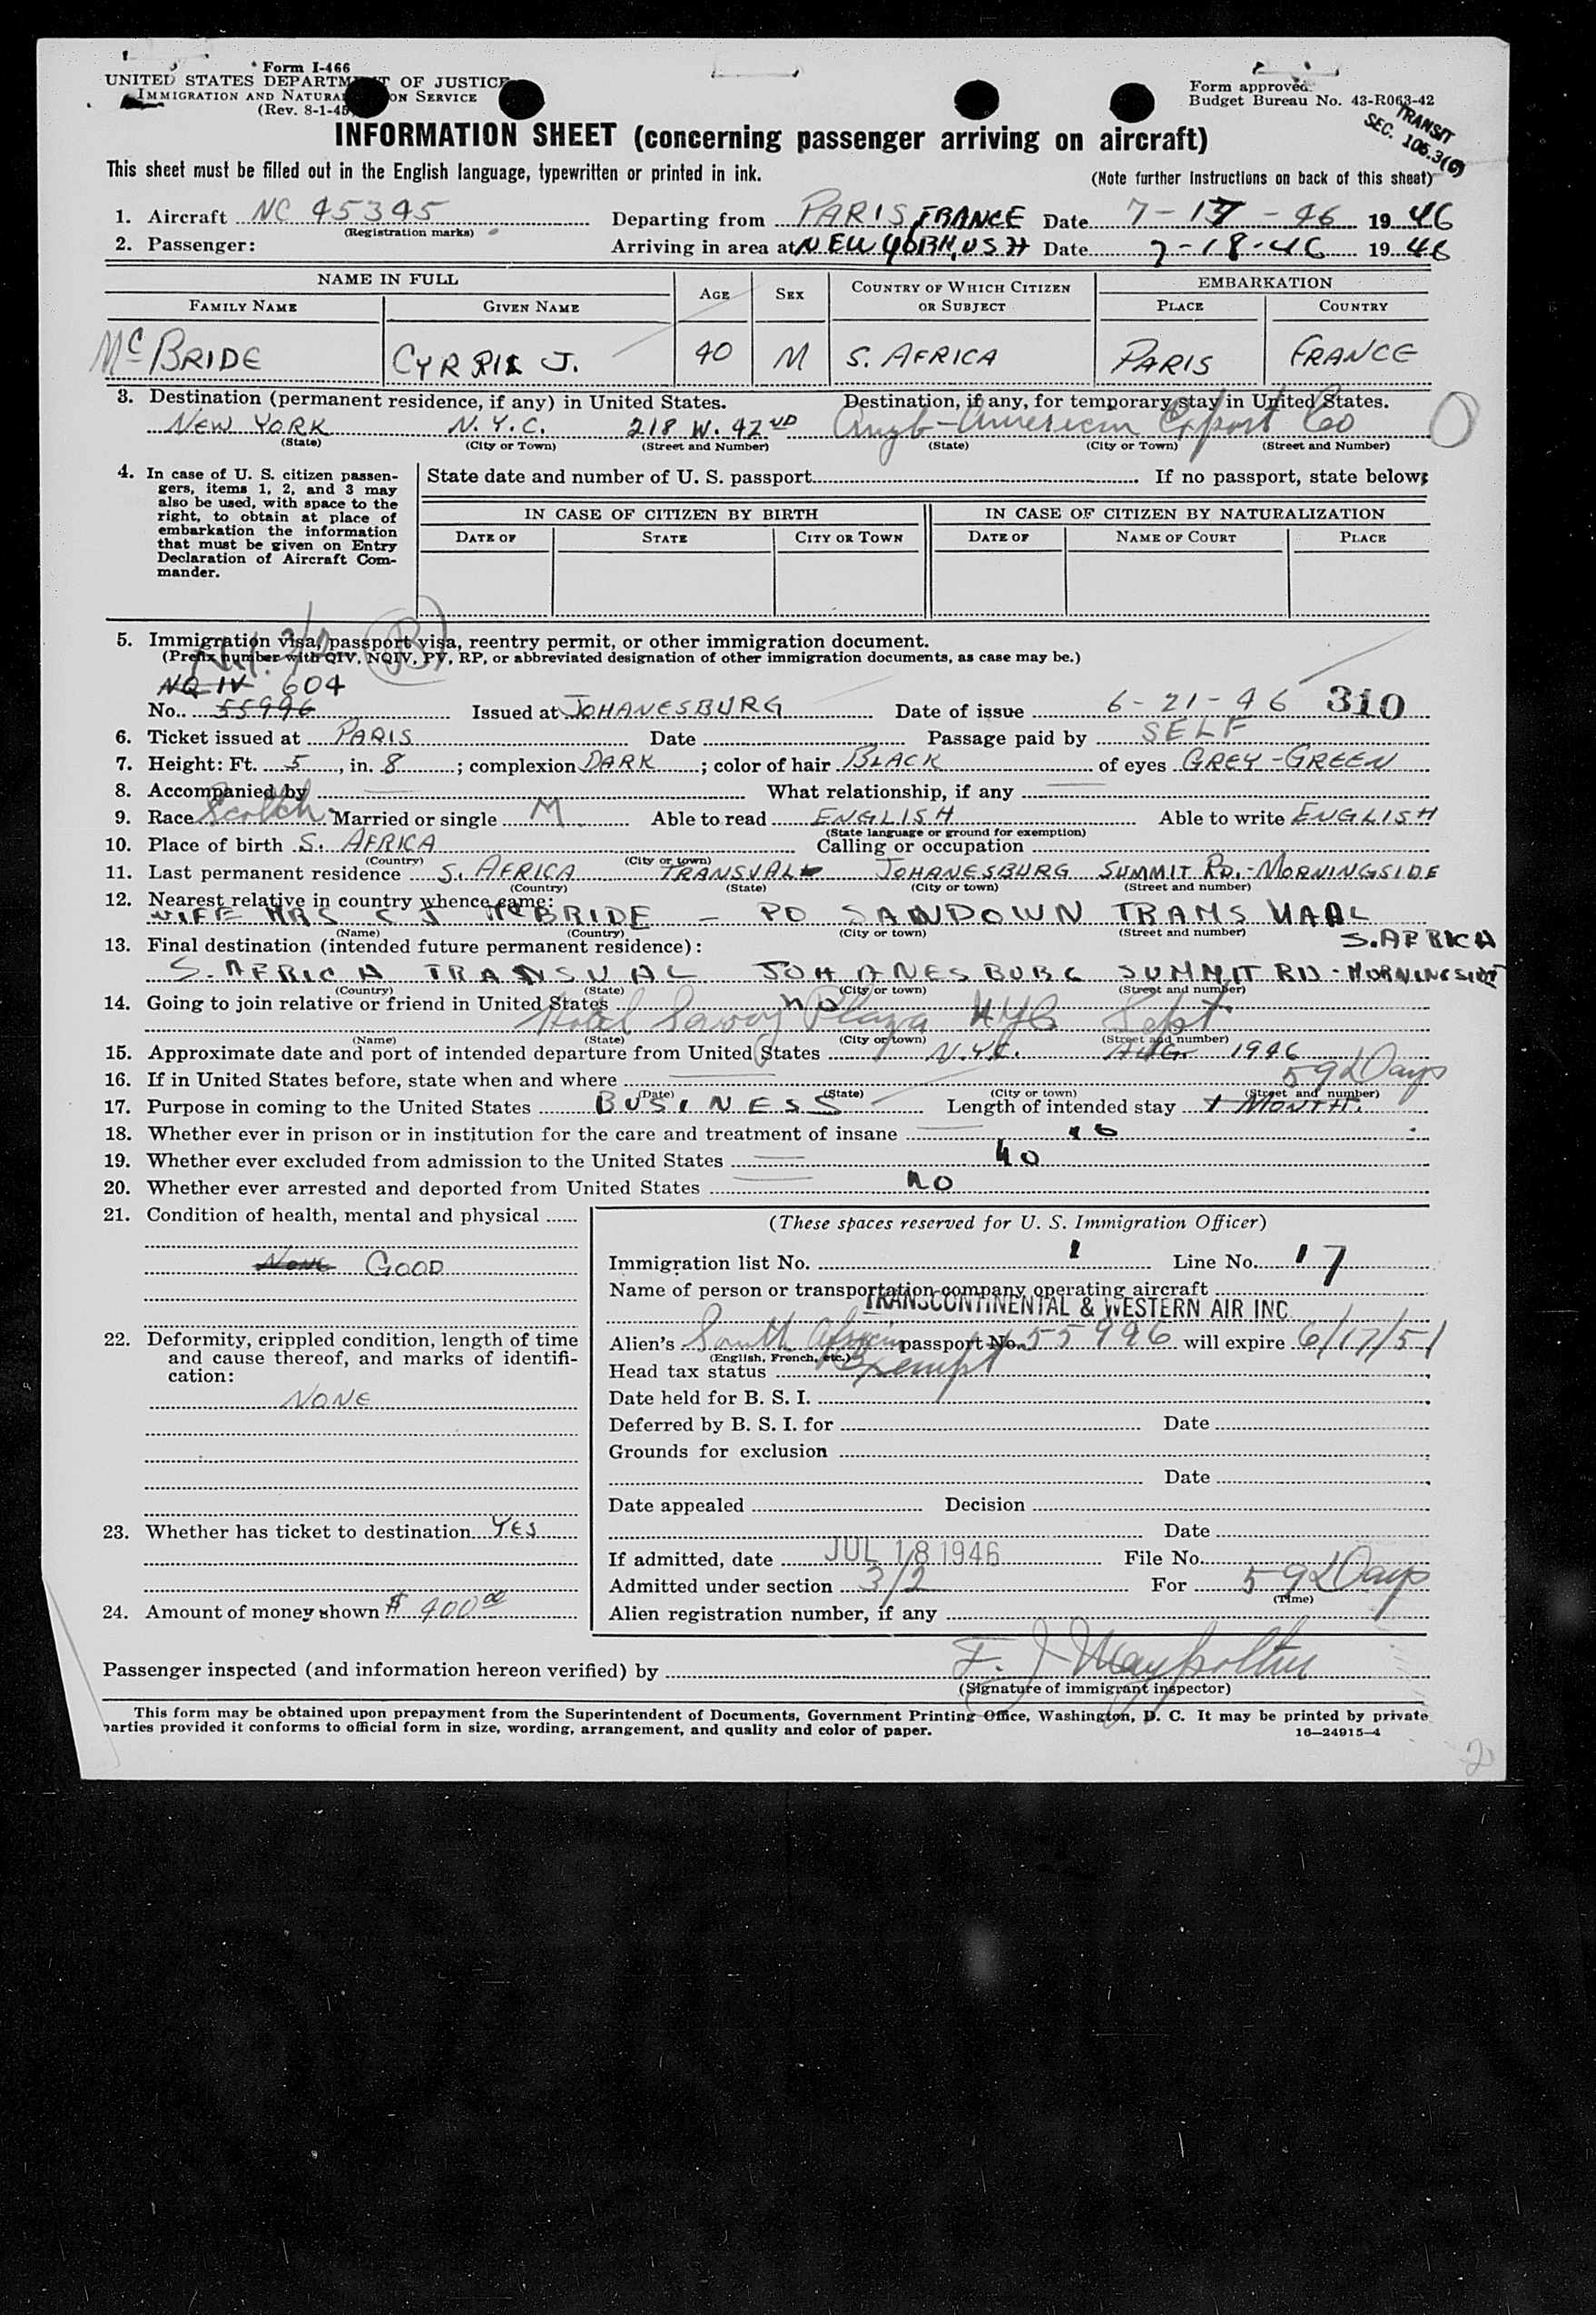 Form I-466
UNITED STATES DEPARTMENT OF JUSTICE
IMMIGRATION AND NATURALIZATION SERVICE
(Rev. 8-1-45)
Form approved.
Budget Bureau No. 43-R063-42
TRANSIT
SEC. 105.3(C)
INFORMATION SHEET (concerning passenger arriving on aircraft)
This sheet must be filled out in the English language, typewritten or printed in ink.
(Note further instructions on back of this sheet)
1. Aircraft NC 45345 Departing from PARIS, FRANCE Date 7-17-46 1946
(Registration marks)
2. Passenger: Arriving in area at NEW YORK, USA Date 7-18-46 1946
NAME IN FULL AGE SEX COUNTRY OF WHICH CITIZEN OR SUBJECT EMBARKATION
FAMILY NAME GIVEN NAME PLACE COUNTRY
McBRIDE CYRRIL J. 40 M S. AFRICA PARIS FRANCE
3. Destination (permanent residence, if any) in United States. Destination, if any, for temporary stay in United States.
NEW YORK N.Y.C. 218 W. 42ND Anglo-American Export Co
(State) (City or Town) (Street and Number) (State) (City or Town) (Street and Number)
4. In case of U. S. citizen passengers, items 1, 2, and 3 may also be used, with space to the right, to obtain at place of embarkation the information that must be given on Entry Declaration of Aircraft Commander.
State date and number of U. S. passport. If no passport, state below:
IN CASE OF CITIZEN BY BIRTH IN CASE OF CITIZEN BY NATURALIZATION
DATE OF STATE CITY OR TOWN DATE OF NAME OF COURT PLACE
5. Immigration visa, passport visa, reentry permit, or other immigration document.
(Prefix number with QIV, NQIV, PV, RP, or abbreviated designation of other immigration documents, as case may be.)
3/2 (B)
NQ IV 604
No. 55996 Issued at JOHANESBURG Date of issue 6-21-46 310
6. Ticket issued at PARIS Date Passage paid by SELF
7. Height: Ft. 5, in. 8; complexion DARK; color of hair BLACK of eyes GREY-GREEN
8. Accompanied by What relationship, if any
9. Race Scotch Married or single M Able to read ENGLISH Able to write ENGLISH
(State language or ground for exemption)
10. Place of birth S. AFRICA Calling or occupation
(Country) (City or town)
11. Last permanent residence S. AFRICA TRANSVAL JOHANESBURG SUMMIT RD.-MORNINGSIDE
(Country) (State) (City or town) (Street and number)
12. Nearest relative in country whence came:
WIFE MRS C J McBRIDE - PO SANDOWN TRANSVAAL S.AFRICA
(Name) (Country) (City or town) (Street and number)
13. Final destination (intended future permanent residence):
S. AFRICA TRANSVAL JOHANESBURG SUMMIT RD-MORNINGSIDE
(Country) (State) (City or town) (Street and number)
14. Going to join relative or friend in United States NO
Hotel Savoy Plaza NYC Sept
(Name) (State) (City or town) (Street and number)
15. Approximate date and port of intended departure from United States N.Y.C. AUG. 1946
16. If in United States before, state when and where 59 Days
(Date) (State) (City or town) (Street and number)
17. Purpose in coming to the United States BUSINESS Length of intended stay 1 MONTH.
18. Whether ever in prison or in institution for the care and treatment of insane no
19. Whether ever excluded from admission to the United States no
20. Whether ever arrested and deported from United States no
21. Condition of health, mental and physical
None GOOD
22. Deformity, crippled condition, length of time and cause thereof, and marks of identification:
NONE
23. Whether has ticket to destination YES
24. Amount of money shown $ 400 00
(These spaces reserved for U. S. Immigration Officer)
Immigration list No. 1 Line No. 17
Name of person or transportation company operating aircraft
TRANSCONTINENTAL & WESTERN AIR INC.
Alien's South African passport No. 55996 will expire 6/17/51
(English, French, etc.)
Head tax status Exempt
Date held for B. S. I.
Deferred by B. S. I. for Date
Grounds for exclusion
Date
Date appealed Decision
Date
If admitted, date JUL 18 1946 File No.
Admitted under section 3/2 For 59 Days
(Time)
Alien registration number, if any
Passenger inspected (and information hereon verified) by F. J.
(Signature of immigrant inspector)
This form may be obtained upon prepayment from the Superintendent of Documents, Government Printing Office, Washington, D. C. It may be printed by private
parties provided it conforms to official form in size, wording, arrangement, and quality and color of paper.
16—24915-4
2